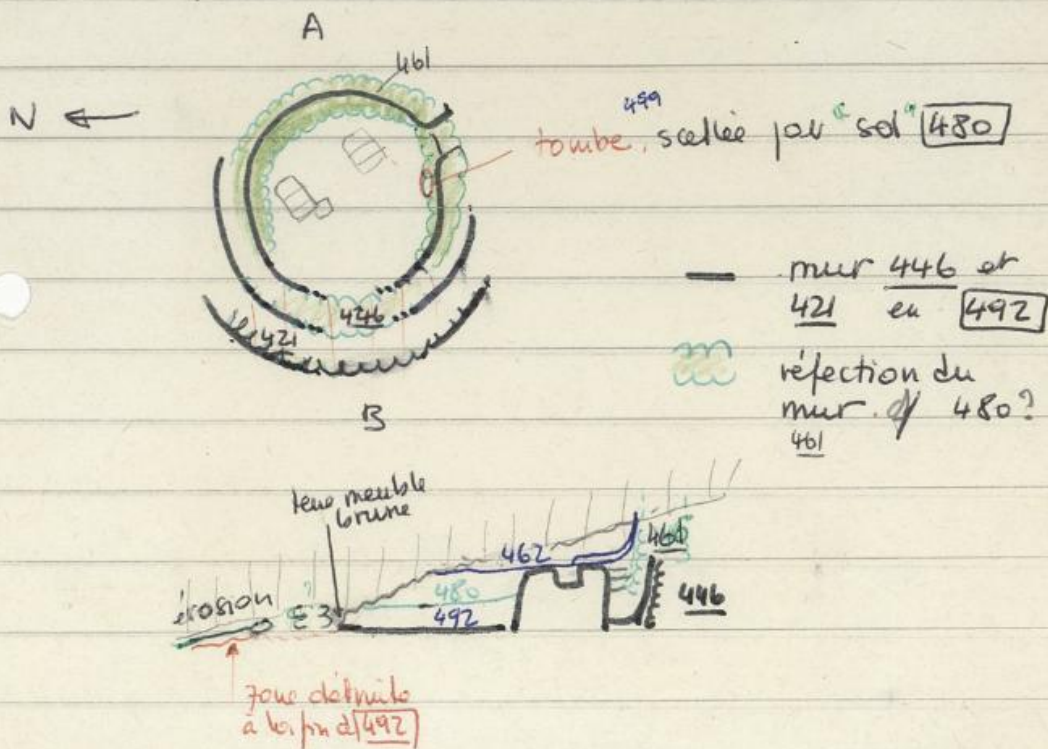 A
461
N
499
tombe, scellée par "sol" 480
446
421
mur 446 et
421 en 492
réfection du
mur d 480?
461
B
terre meuble
brune
462
461
480
492
446
érosion
E3
zone détruite
à la fin d 492